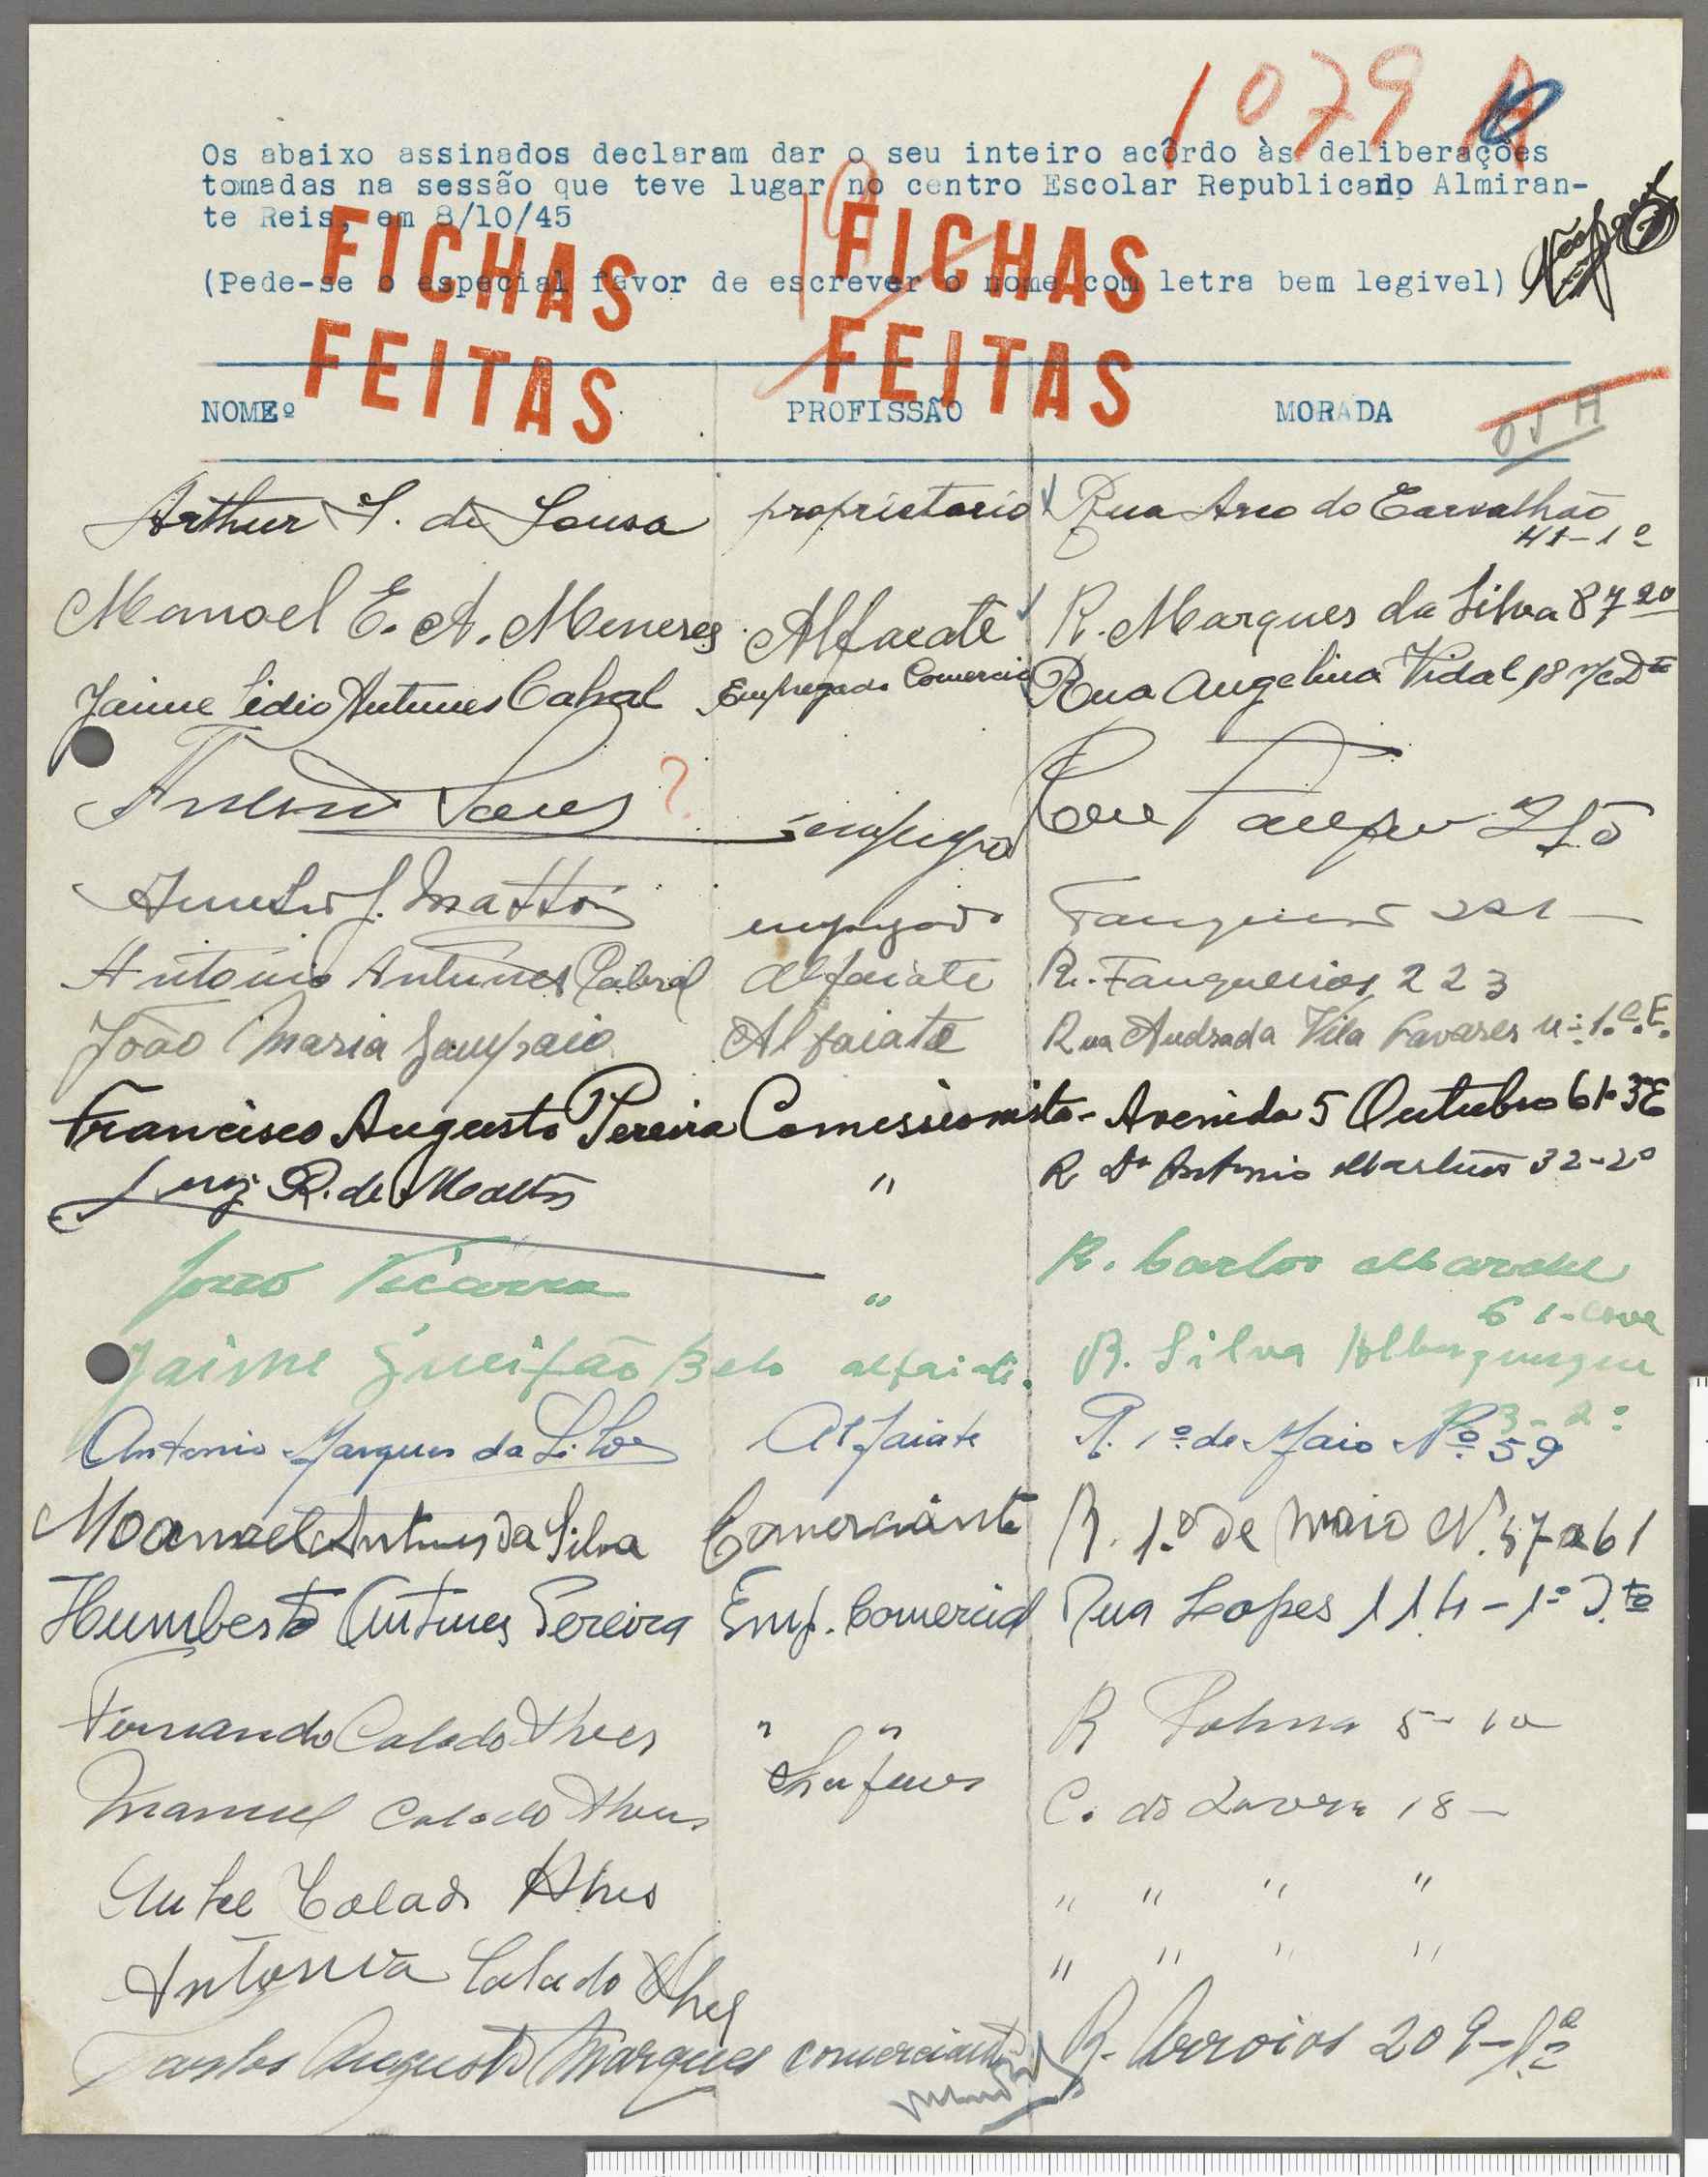 1079 A
Os abaixo assinados declaram dar o seu inteiro acôrdo às deliberações
tomadas na sessão que teve lugar no centro Escolar Republicano Almiran-
te Reis, em 8/10/45
FICHAS FEITAS
FICHAS FEITAS
(Pede-se o especial favor de escrever o nome com letra bem legivel)
NOMEº PROFISSÃO MORADA
Arthur S. de Sousa proprietario Rua Arco do Carvalhão
41-1º
Manoel E. A. Meneses Alfaeate R. Marques da Silva 87 2º
Jaime Lidio Antunes Cabral Empregado Comercio Rua Angelina Vidal 18 r/c Dto
?
J. Mattos empregado Fanqueiros 221
António Antunes Cabral Alfaiate R. Fanqueiros 223
João Maria Sampaio Alfaiate Rua Andrada Vila Tavares 1.º E.
Francisco Augusto Pereira Comessionista - Avenida 5 Outubro 61 3º E
Luiz R. de Mattos " R Dr Antonio Martins 32-2º
João " R. Carlos Mardel
61-cave
Jaime Gueifão Belo alfaiate. R. Silva Albuquerque
3-2º
Antonio Marques da Silva Alfaiate R. 1º de Maio Nº 59
Manuel Antunes da Silva Comerciante R. 1.º de Maio N. 57 a 61
Humberto Antunes Pereira Emp. Comercial Rua Lopes 114-1º D.to
Fernando Calado Alves " " R Palma 5-1º
Manuel Calado Alves C. do Lavra 18-
Calado Alves " " " "
Antónia Calado Alves " " " "
Carlos Augusto Marques comerciante R. Arroios 209-1º